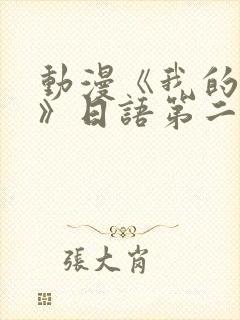 動漫《我的
》日語第二
張大肖